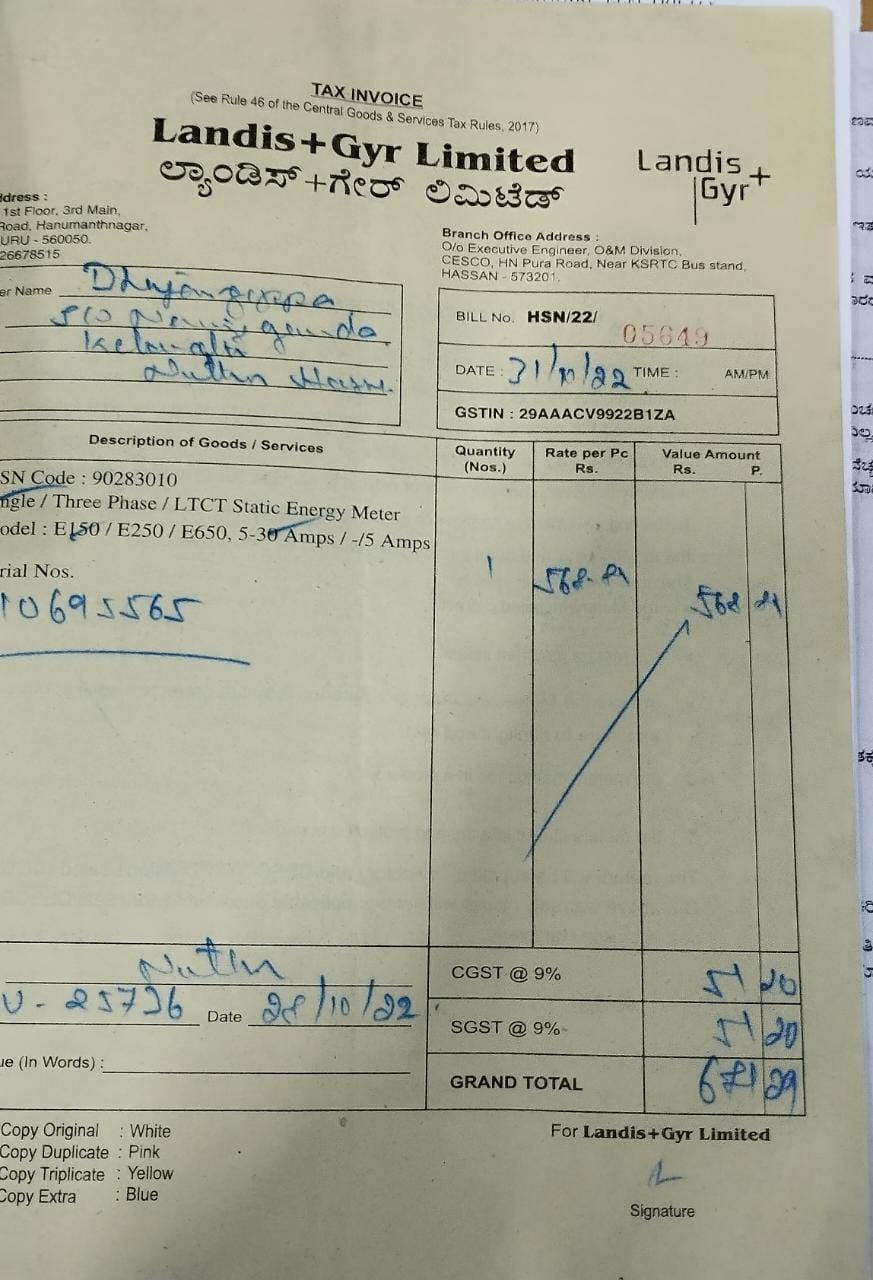 TAX INVOICE
(See Rule 46 of the Central Goods & Services Tax Rules, 2017)
Landis+Gyr Limited
ಲ್ಯಾಂಡಿಸ್+ಗೇರ್ ಲಿಮಿಟೆಡ್
Landis
Gyr+
ddress :
1st Floor, 3rd Main,
Road, Hanumanthnagar,
URU - 560050.
26678515
Branch Office Address :
O/o Executive Engineer, O&M Division,
CESCO, HN Pura Road, Near KSRTC Bus stand,
HASSAN - 573201.
er Name
BILL No. HSN/22/ 05649
DATE : 31/10/22 TIME : AM/PM
GSTIN : 29AAACV9922B1ZA
Description of Goods / Services Quantity (Nos.) Rate per Pc Rs. Value Amount Rs. P.
SN Code : 90283010
ngle / Three Phase / LTCT Static Energy Meter
odel : E150 / E250 / E650, 5-30 Amps / -/5 Amps
rial Nos. 1 568.81 568 81
10695565
CGST @ 9% 51 20
25736 Date 28/10/22
SGST @ 9% 51 20
ue (In Words) :
GRAND TOTAL 671 29
Copy Original : White
Copy Duplicate : Pink
Copy Triplicate : Yellow
Copy Extra : Blue
For Landis+Gyr Limited
Signature